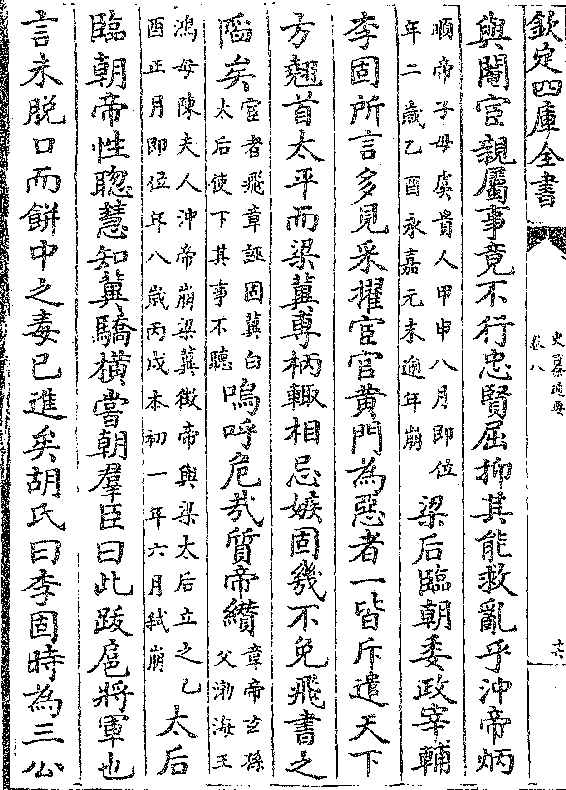 欽定四庫全書
史纂通要
卷八
與閹宦親屬事竟不行忠賢屈抑其能救亂乎沖帝炳
順帝子母虞貴人甲申八月即位
年二歲乙酉永嘉元未逾年崩
梁后臨朝委政宰輔
李固所言多見采擢宦官黄門為惡者一皆斥遣天下
方翹首太平而梁冀專柄輙相忌嫉固幾不免飛書之
陷矣
宦者飛章誣固冀白
太后使下其事不聽
嗚呼危哉質帝纘
章帝玄孫
父渤海王
鴻母陳夫人沖帝崩梁冀徵帝與梁太后立之乙
酉正月即位年八歲丙戌本初一年六月弑崩
太后
臨朝帝性聰慧知冀驕橫嘗朝羣臣曰此跋扈將軍也
言未脱口而餅中之毒已進矣胡氏曰李固時為三公